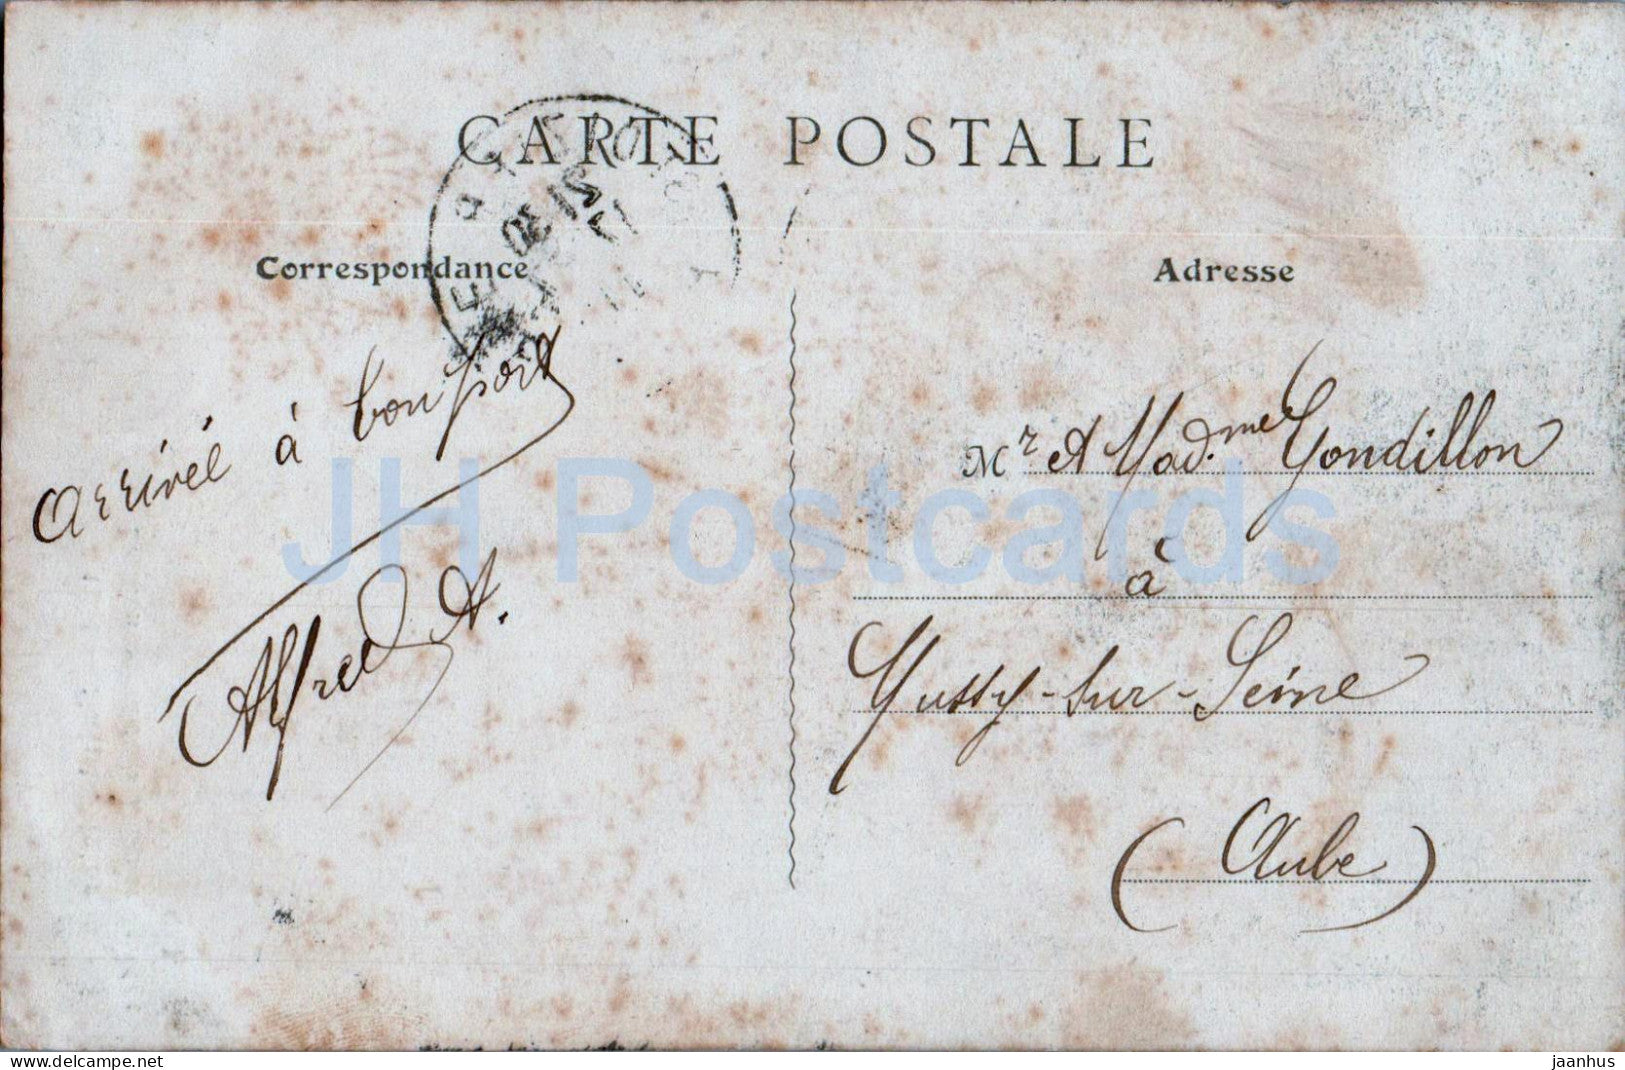 CARTE POSTALE
Correspondance
Adresse
arrivée à bon port
Alfred A.
Mr et Mad.me Gondillon
à
Mussy-sur-Seine
(Aube)
JH Postcards
delcampe.net
jaanhus